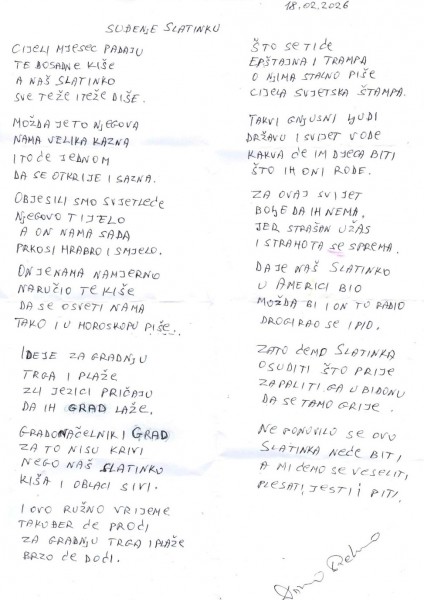 18.02.2026
SUĐENJE SLATINKU
CIJELI MJESEC PADAJU
TE DOSADNE KIŠE
A NAŠ SLATINKO
SVE TEŽE I TEŽE DIŠE.
MOŽDA JE TO NJEGOVA
NAMA VELIKA KAZNA
I TO ĆE JEDNOM
DA SE OTKRIJE I SAZNA.
OBJESILI SMO SVJETLEĆE
NJEGOVO TIJELO
A ON NAMA SADA
PRKOSI HRABRO I SMJELO.
ON JE NAMA NAMJERNO
NARUČIO TE KIŠE
DA SE OSVETI NAMA
TAKO I U HOROSKOPU PIŠE.
IDEJE ZA GRADNJU
TRGA I PLAŽE
ZLI JEZICI PRIČAJU
DA IH GRAD LAŽE.
GRADONAČELNIK I GRAD
ZA TO NISU KRIVI
NEGO NAŠ SLATINKO
KIŠA I OBLACI SIVI.
I OVO RUŽNO VRIJEME
TAKOĐER ĆE PROĆI
ZA GRADNJU TRGA I PLAŽE
BRZO ĆE DOĆI.
ŠTO SE TIČE
EPŠTAJNA I TRAMPA
O NJIMA STALNO PIŠE
CIJELA SVJETSKA ŠTAMPA.
TAKVI GNJUSNI LJUDI
DRŽAVU I SVIJET VODE
KAKVA ĆE IM DJECA BITI
ŠTO IH ONI RODE.
ZA OVAJ SVIJET
BOLJE DA IH NEMA.
JER STRAŠAN UŽAS
I STRAHOTA SE SPREMA.
DA JE NAŠ SLATINKO
U AMERICI BIO
MOŽDA BI I ON TO RADIO
DROGIRAO SE I PIO.
ZATO ĆEMO SLATINKA
OSUDITI ŠTO PRIJE
ZAPALITI GA U BIDONU
DA SE TAMO GRIJE.
NE PONOVILO SE OVO
SLATINKA NEĆE BITI
A MI ĆEMO SE VESELITI
PLESATI, JESTI I PITI.